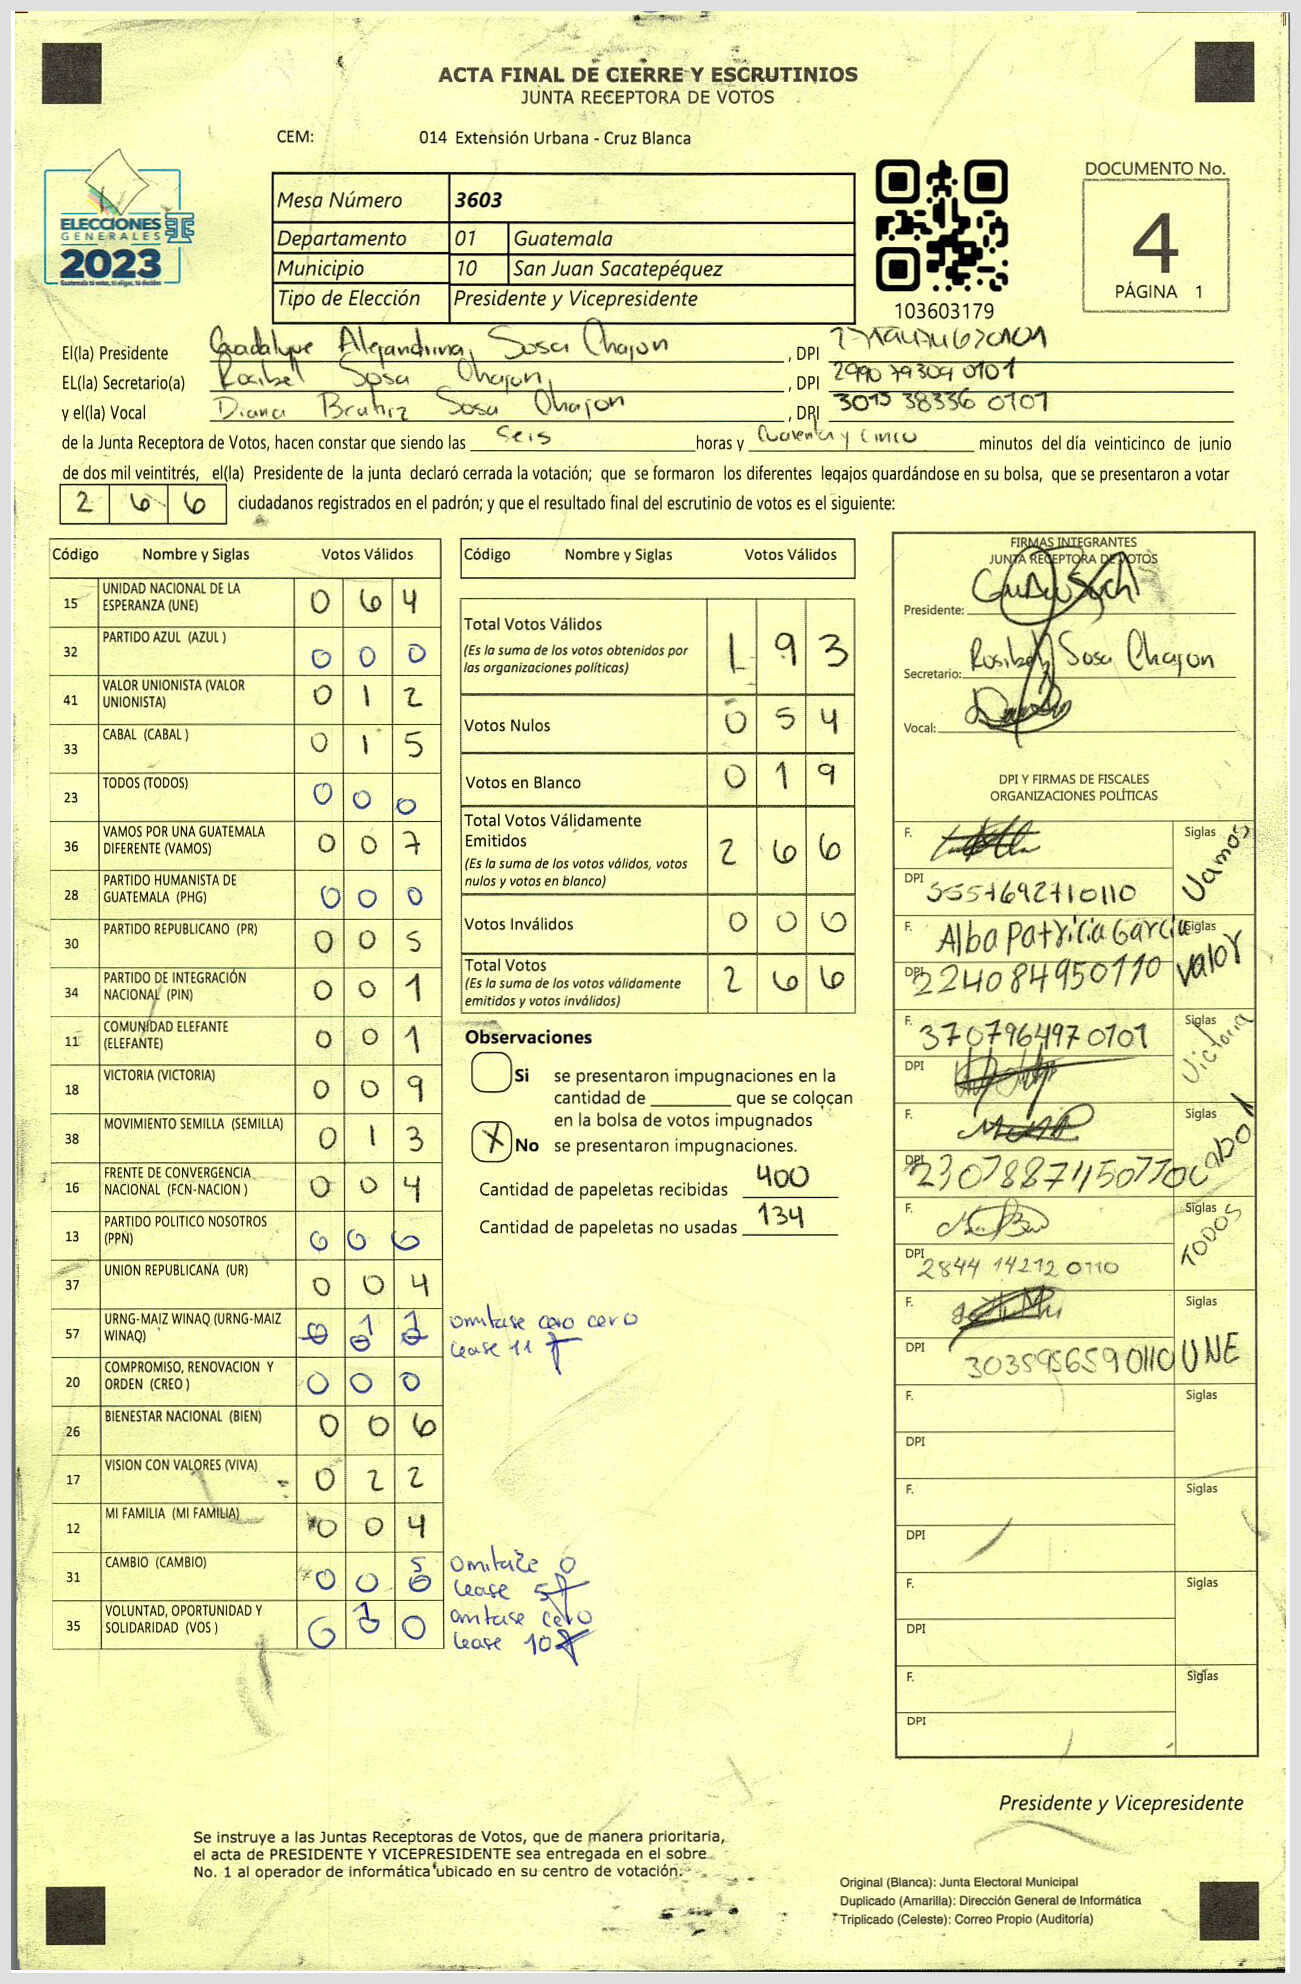 ACTA FINAL DE CIERRE Y ESCRUTINIOS
JUNTA RECEPTORA DE VOTOS
CEM: 014 Extensión Urbana - Cruz Blanca
ELECCIONES
GENERALES
2023
Guatemala tú votas, tú eliges, tú decides
Mesa Número 3603
Departamento 01 Guatemala
Municipio 10 San Juan Sacatepéquez
Tipo de Elección Presidente y Vicepresidente
103603179
DOCUMENTO No.
4
PÁGINA 1
El(la) Presidente Guadalupe Alejandrina Sosa Chajon , DPI
EL(la) Secretario(a) Rosibel Sosa Chajon , DPI 2990 79309 0101
y el(la) Vocal Diana Beatriz Sosa Chajon , DPI 3015 38336 0101
de la Junta Receptora de Votos, hacen constar que siendo las seis horas y Cuarenta y cinco minutos del día veinticinco de junio
de dos mil veintitrés, el(la) Presidente de la junta declaró cerrada la votación; que se formaron los diferentes legajos guardándose en su bolsa, que se presentaron a votar
2 6 6 ciudadanos registrados en el padrón; y que el resultado final del escrutinio de votos es el siguiente:
Código Nombre y Siglas Votos Válidos
15 UNIDAD NACIONAL DE LA ESPERANZA (UNE) 0 6 4
32 PARTIDO AZUL (AZUL ) 0 0 0
41 VALOR UNIONISTA (VALOR UNIONISTA) 0 1 2
33 CABAL (CABAL ) 0 1 5
23 TODOS (TODOS) 0 0 0
36 VAMOS POR UNA GUATEMALA DIFERENTE (VAMOS) 0 0 7
28 PARTIDO HUMANISTA DE GUATEMALA (PHG) 0 0 0
30 PARTIDO REPUBLICANO (PR) 0 0 5
34 PARTIDO DE INTEGRACIÓN NACIONAL (PIN) 0 0 1
11 COMUNIDAD ELEFANTE (ELEFANTE) 0 0 1
18 VICTORIA (VICTORIA) 0 0 9
38 MOVIMIENTO SEMILLA (SEMILLA) 0 1 3
16 FRENTE DE CONVERGENCIA NACIONAL (FCN-NACION ) 0 0 4
13 PARTIDO POLITICO NOSOTROS (PPN) 0 0 0
37 UNION REPUBLICANA (UR) 0 0 4
57 URNG-MAIZ WINAQ (URNG-MAIZ WINAQ) 0 1 1 omitase cero cero
lease 11
20 COMPROMISO, RENOVACION Y ORDEN (CREO ) 0 0 0
26 BIENESTAR NACIONAL (BIEN) 0 0 6
17 VISION CON VALORES (VIVA) 0 2 2
12 MI FAMILIA (MI FAMILIA) 0 0 4
31 CAMBIO (CAMBIO) 0 0 5 omitase 0
lease 5
35 VOLUNTAD, OPORTUNIDAD Y SOLIDARIDAD (VOS ) 0 1 0 omitase cero
lease 10
Código Nombre y Siglas Votos Válidos
Total Votos Válidos 1 9 3
(Es la suma de los votos obtenidos por
las organizaciones políticas)
Votos Nulos 0 5 4
Votos en Blanco 0 1 9
Total Votos Válidamente
Emitidos 2 6 6
(Es la suma de los votos válidos, votos
nulos y votos en blanco)
Votos Inválidos 0 0 0
Total Votos 2 6 6
(Es la suma de los votos válidamente
emitidos y votos inválidos)
Observaciones
Si se presentaron impugnaciones en la
cantidad de ________ que se colocan
en la bolsa de votos impugnados
X No se presentaron impugnaciones.
Cantidad de papeletas recibidas 400
Cantidad de papeletas no usadas 134
FIRMAS INTEGRANTES
JUNTA RECEPTORA DE VOTOS
Presidente:
Secretario: Rosibel Sosa Chajon
Vocal:
DPI Y FIRMAS DE FISCALES
ORGANIZACIONES POLÍTICAS
F. Siglas Vamos
DPI
F. Alba Patricia Garcia Siglas valor
DPI 224084950110
F. 3707964970101 Siglas Victoria
DPI
F. Siglas Cabal
DPI
F. Siglas TODOS
DPI 2844 14212 0110
F. Siglas UNE
DPI 3035956590110
F. Siglas
DPI
F. Siglas
DPI
F. Siglas
DPI
F. Siglas
DPI
Presidente y Vicepresidente
Se instruye a las Juntas Receptoras de Votos, que de manera prioritaria,
el acta de PRESIDENTE Y VICEPRESIDENTE sea entregada en el sobre
No. 1 al operador de informática ubicado en su centro de votación.
Original (Blanca): Junta Electoral Municipal
Duplicado (Amarilla): Dirección General de Informática
Triplicado (Celeste): Correo Propio (Auditoría)